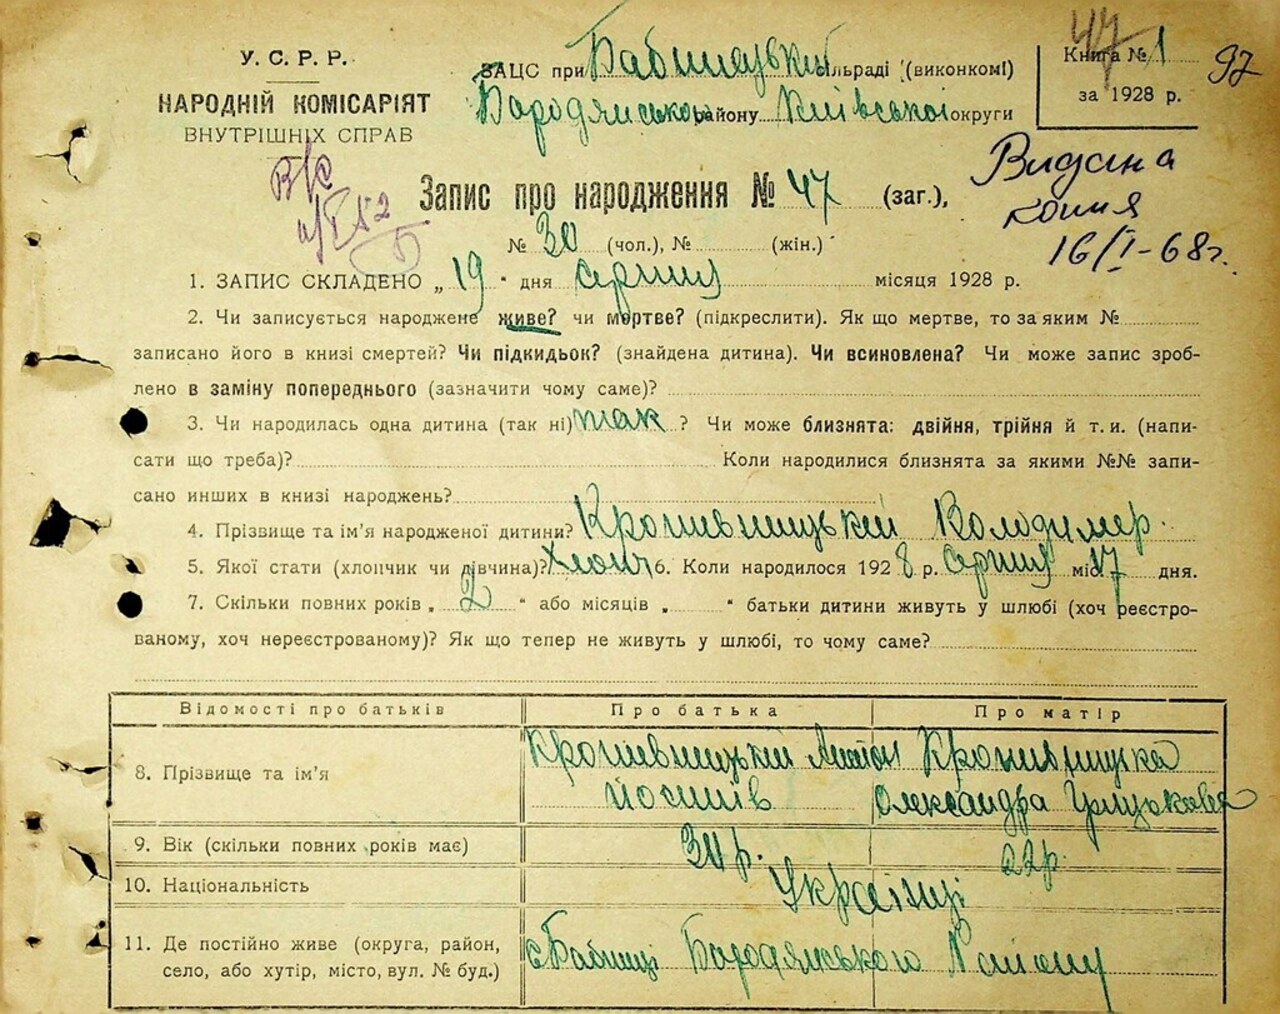 У. С. Р. Р.
НАРОДНІЙ КОМІСАРІЯТ
ВНУТРІШНІХ СПРАВ
ЗАЦС при Бабинецькій сільраді (виконкомі)
Бородянсько району Київської округи
47
Книга № 1
за 1928 р.
97
В/с
Видана
копия
16/I-68г.
Запис про народження № 47 (заг.),
№ 30 (чол.), № (жін.)
1. ЗАПИС СКЛАДЕНО „ 19 “ дня серпня місяця 1928 р.
2. Чи записується народжене живе? чи мертве? (підкреслити). Як що мертве, то за яким №
записано його в книзі смертей? Чи підкидьок? (знайдена дитина). Чи всиновлена? Чи може запис зроб-
лено в заміну попереднього (зазначити чому саме)?
3. Чи народилась одна дитина (так ні) так ? Чи може близнята: двійня, трійня й т. и. (напи-
сати що треба)? Коли народилися близнята за якими №№ запи-
сано инших в книзі народжень?
4. Прізвище та ім’я народженої дитини? Кропивницький Володимер.
5. Якої стати (хлопчик чи дівчина)? Хлопч 6. Коли народилося 1928 р. серпня міс. 17 дня.
7. Скільки повних років „ 2 “ або місяців „ “ батьки дитини живуть у шлюбі (хоч реєстро-
ваному, хоч нереєстрованому)? Як що тепер не живуть у шлюбі, то чому саме?
Відомості про батьків Про батька Про матір
8. Прізвище та ім’я Кропивницький Антон Йосипів Кропивницька Олександра
9. Вік (скільки повних років має) 30 р. 22 р.
10. Національність Українці
11. Де постійно живе (округа, район,
село, або хутір, місто, вул. № буд.) с Бабинці Бородянського Району